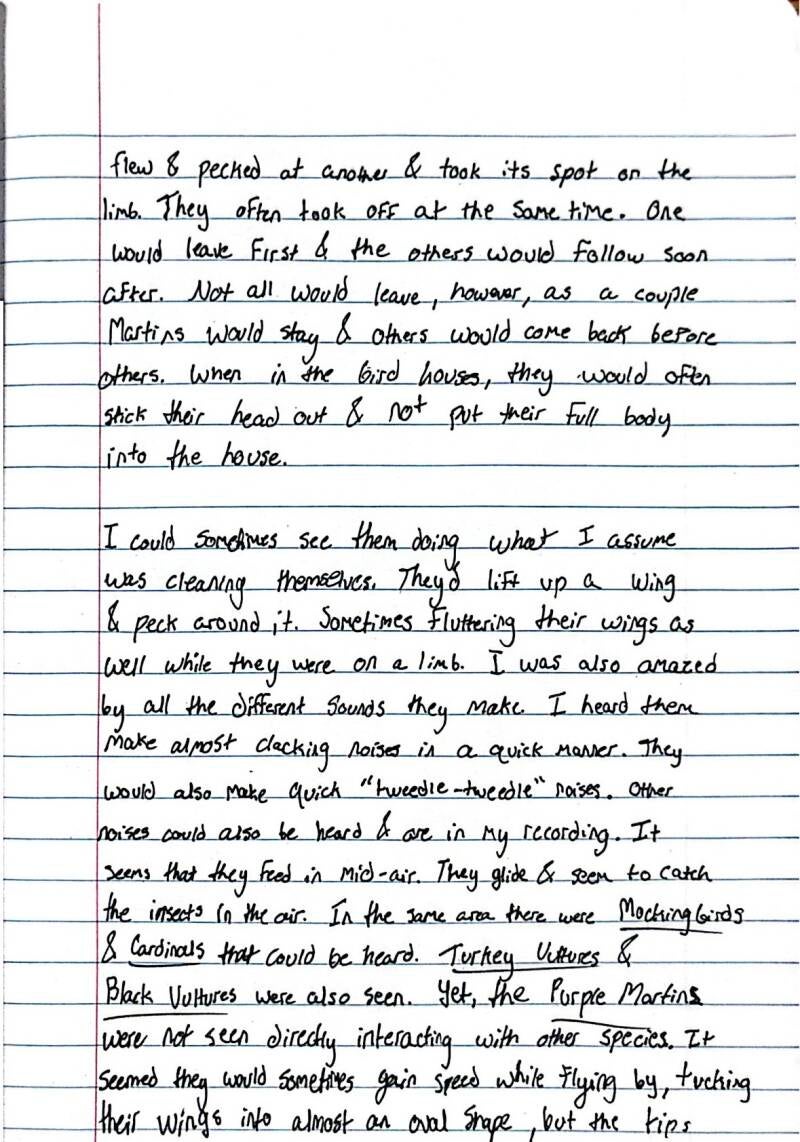 flew & pecked at another & took its spot on the
limb. They often took off at the same time. One
would leave first & the others would follow soon
after. Not all would leave, however, as a couple
Martins would stay & others would come back before
others. When in the bird houses, they would often
stick their head out & not put their full body
into the house.
I could sometimes see them doing what I assume
was cleaning themselves. They'd lift up a wing
& peck around it. Sometimes fluttering their wings as
well while they were on a limb. I was also amazed
by all the different sounds they make. I heard them
make almost clacking noises in a quick manner. They
would also make quick "tweedle-tweedle" noises. Other
noises could also be heard & are in my recording. It
seems that they feed in mid-air. They glide & seem to catch
the insects in the air. In the same area there were Mockingbirds
& Cardinals that could be heard. Turkey Vultures &
Black Vultures were also seen. Yet, the Purple Martins
were not seen directly interacting with other species. It
seemed they would sometimes gain speed while flying by, tucking
their wings into almost an oval shape, but the tips